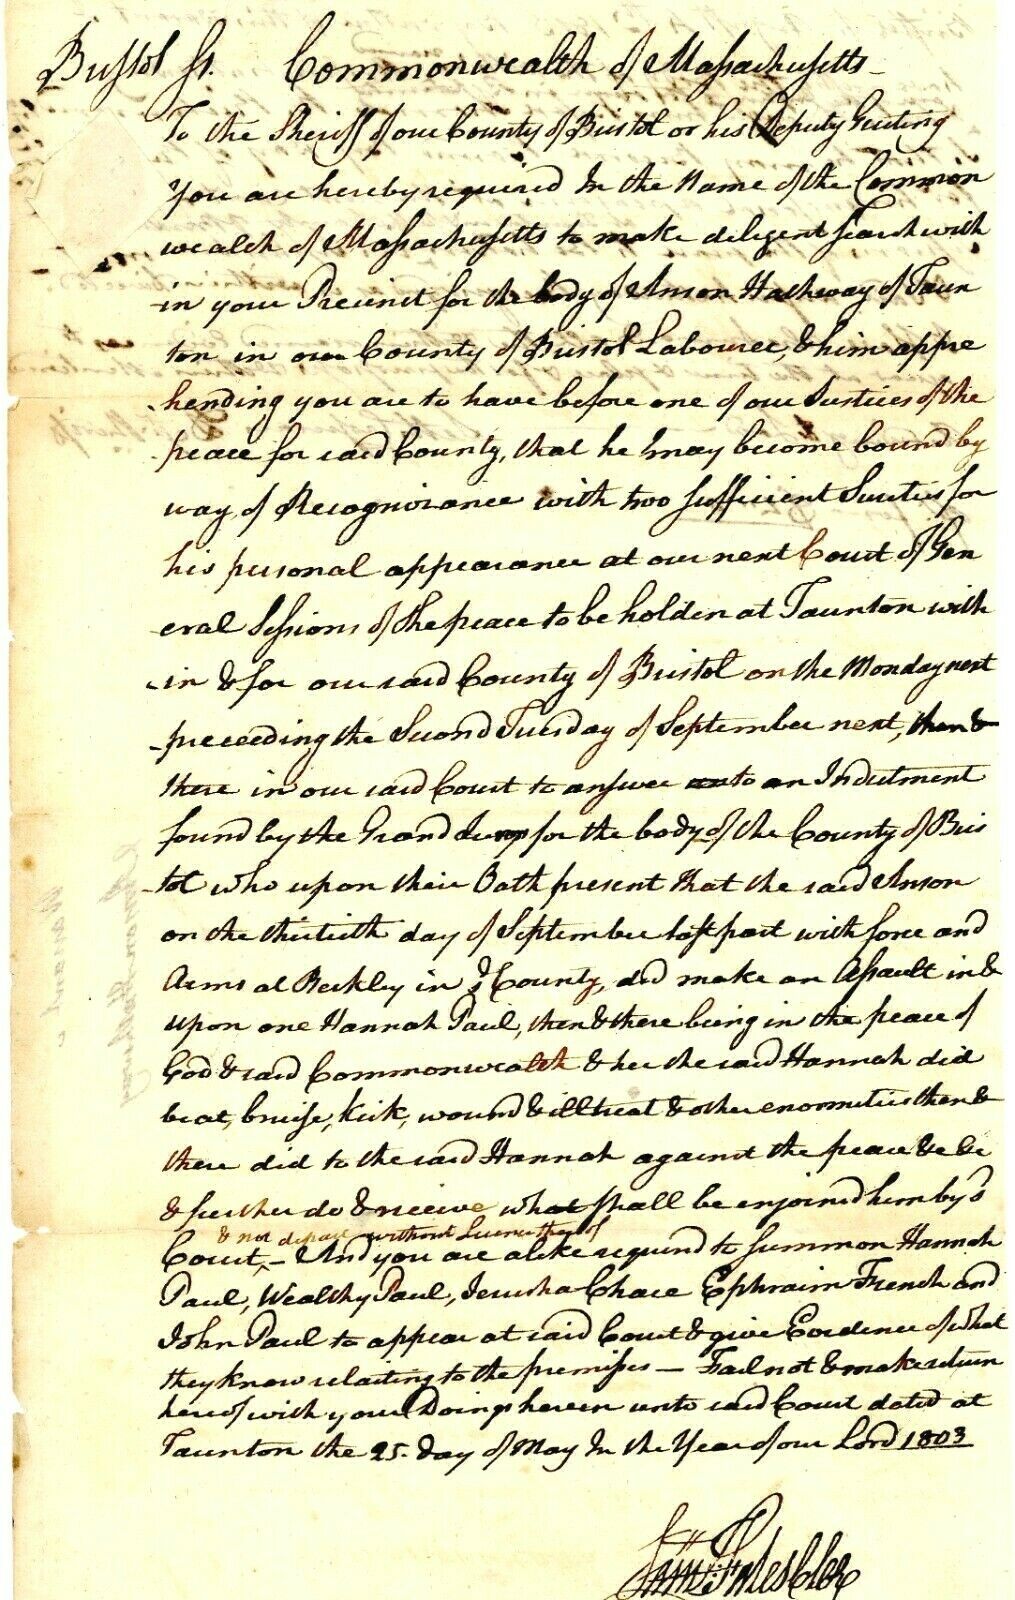 Bristol Ss. Commonwealth of Massachusetts —
To the Sheriff of our County of Bristol or his Deputy Greeting
You are hereby required In the Name of the Common
wealth of Massachusetts to make diligent search with
in your Precinct for the body of Anson Hatheway of Taun
ton in our County of Bristol Labourer, & him appre
hending you are to have before one of our Justices of the
peace for said County, that he may become bound by
way of Recognizance with two sufficient Sureties for
his personal appearance at our next Court of Gen
eral Sessions of the peace to be holden at Taunton with
in & for our said County of Bristol on the Monday next
preceeding the Second Tuesday of September next, then &
there in our said Court to answer to an Indictment
found by the Grand Jury for the body of the County of Bris
tol who upon their Oath present that the said Anson
on the thirtieth day of September last past with force and
Arms at Berkley in sd County, did make an Assault in &
upon one Hannah Paul, then & there being in the peace of
God & said Commonwealth & her the said Hannah did
beat, bruise, kick, wound & illtreat & other enormities then &
there did to the said Hannah against the peace &c &c
& further do & receive what shall be enjoined him by sd
& not depart without Licence thereof
Court, — And you are alike required to summon Hannah
Paul, Wealthy Paul, Jerusha Chace Ephraim French and
John Paul to appear at said Court & give Evidence of what
they know relaiting to the premises — Fail not & make return
hereof with your Doings herein unto said Court dated at
Taunton the 25. day of May In the Year of our Lord 1803
Saml Fales Cler